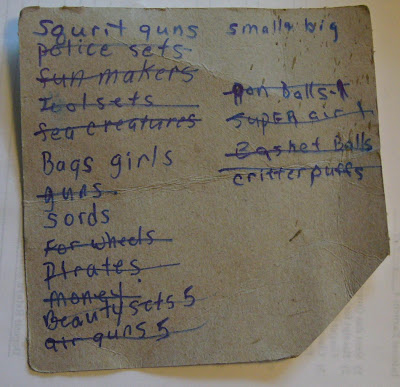 Squrit guns small & big
police sets
fun makers
Toolsets
sea creatures
Bags girls
guns.
Sords
For wheels
Pirates
money
Beauty sets 5
air guns 5
Balls-1
SUPER air 1
Basket Balls
critter puffs